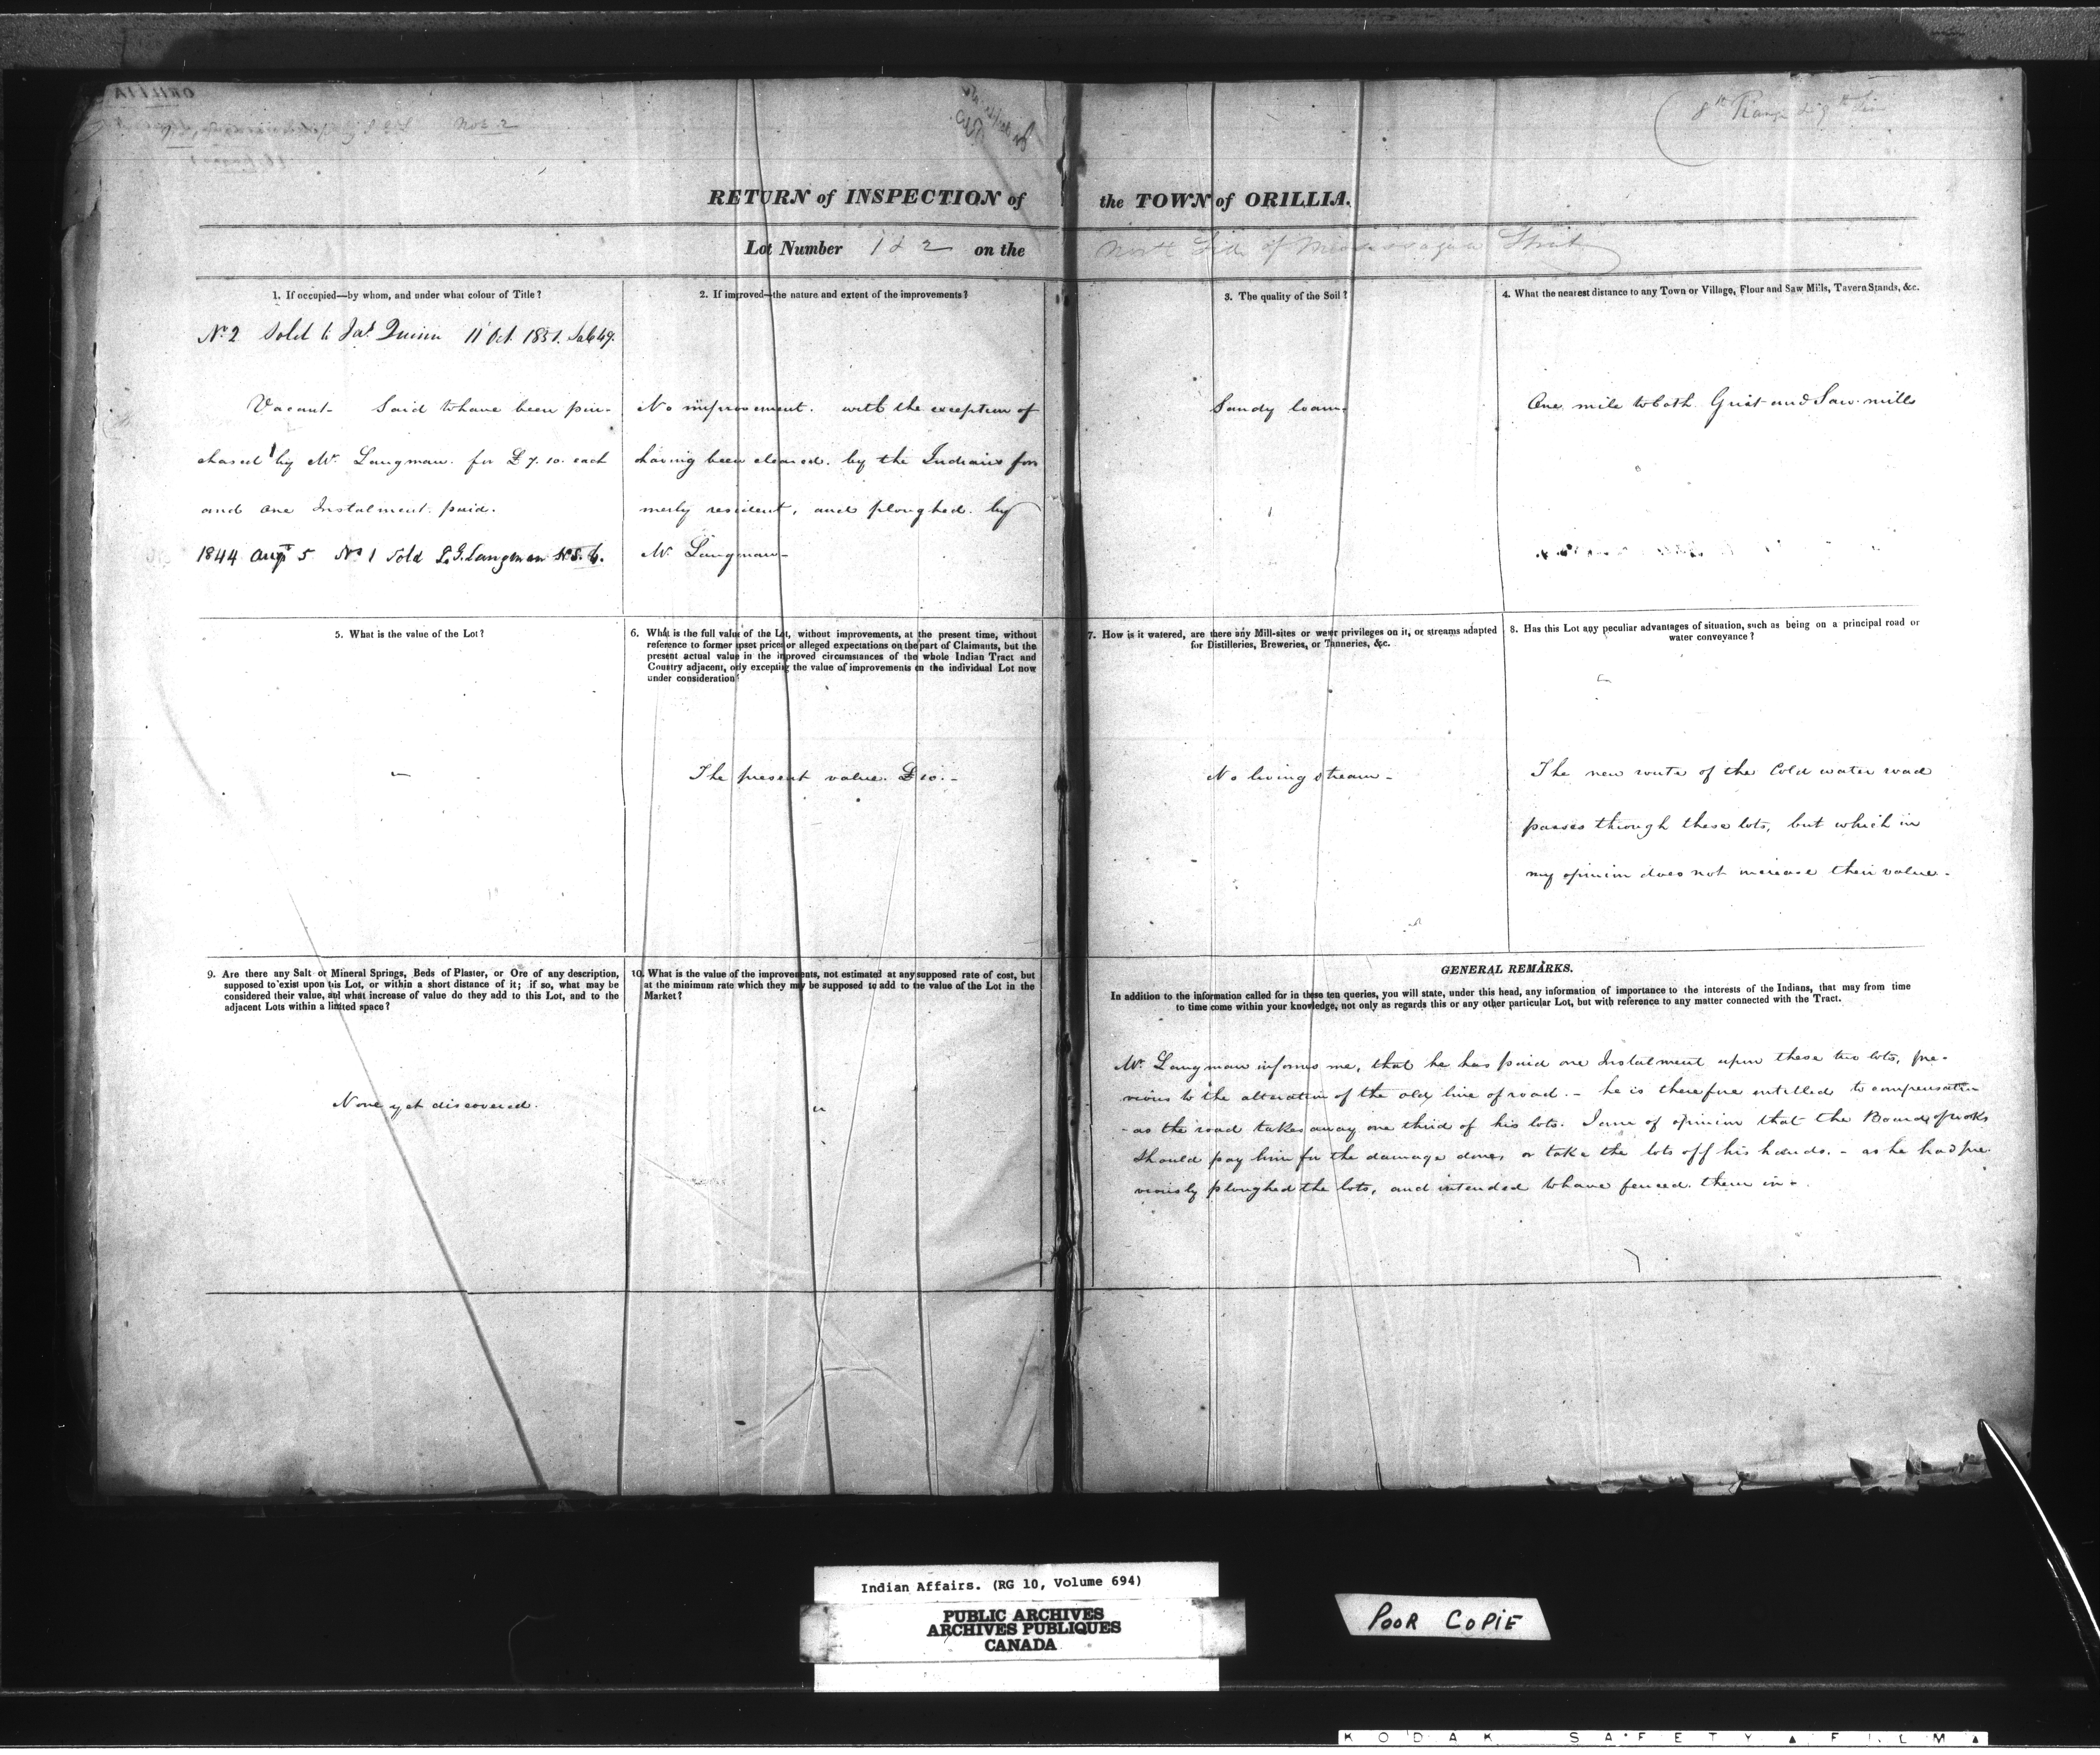 Nos 2
8th Range
RETURN of INSPECTION of the TOWN of ORILLIA.
Lot Number 1 & 2 on the North Side of Mississaga Street
1. If occupied—by whom, and under what colour of Title?
No. 2 Sold to Jas. Quinn 11 Oct. 1851. Sale 49.
Vacant - Said to have been pur-
chased by Mr. Langman. for £7.10. each
and one Instalment paid.
1844 Augt 5 No 1 Sold L.G. Langman
2. If improved—the nature and extent of the improvements?
No improvement. with the exception of
having been cleared. by the Indians for
merly resident, and ploughed. by
Mr. Langman-
3. The quality of the Soil?
Sandy loam.
4. What the nearest distance to any Town or Village, Flour and Saw Mills, Tavern Stands, &c.
One mile to both Grist and Saw mills
5. What is the value of the Lot?
6. What is the full value of the Lot, without improvements, at the present time, without
reference to former upset prices or alleged expectations on the part of Claimants, but the
present actual value in the improved circumstances of the whole Indian Tract and
Country adjacent, only excepting the value of improvements on the individual Lot now
under consideration?
The present value. £10.-
7. How is it watered, are there any Mill-sites or water privileges on it, or streams adapted
for Distilleries, Breweries, or Tanneries, &c.
No living stream-
8. Has this Lot any peculiar advantages of situation, such as being on a principal road or
water conveyance?
The new route of the Cold water road
passes through these lots, but which in
my opinion does not increase their value-
9. Are there any Salt or Mineral Springs, Beds of Plaster, or Ore of any description,
supposed to exist upon this Lot, or within a short distance of it; if so, what may be
considered their value, and what increase of value do they add to this Lot, and to the
adjacent Lots within a limited space?
None yet discovered.
10. What is the value of the improvements, not estimated at any supposed rate of cost, but
at the minimum rate which they may be supposed to add to the value of the Lot in the
Market?
GENERAL REMARKS.
In addition to the information called for in these ten queries, you will state, under this head, any information of importance to the interests of the Indians, that may from time
to time come within your knowledge, not only as regards this or any other particular Lot, but with reference to any matter connected with the Tract.
Mr. Langman informs me, that he has paid one Instalment upon these two lots, pre-
vious to the alteration of the old line of road. - he is therefore entitled to compensation
- as the road takes away one third of his lots. I am of opinion that the Board of works
should pay him for the damage done, or take the lots off his hands. - as he had pre-
viously ploughed the lots, and intended to have fenced them in.
Indian Affairs. (RG 10, Volume 694)
PUBLIC ARCHIVES
ARCHIVES PUBLIQUES
CANADA
POOR COPIE
KODAK SAFETY FILM